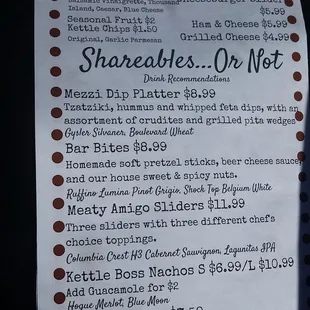 Balsamic Vinaigrette, Thousand
Island, Caesar, Blue Cheese
$5.99
Seasonal Fruit $2
Ham & Cheese $5.99
Kettle Chips $1.50
Grilled Cheese $4.99
Original, Garlic Parmesan
Shareables...Or Not
Drink Recommendations
Mezzi Dip Platter $8.99
Tzatziki, hummus and whipped feta dips, with an
assortment of crudites and grilled pita wedges
Gysler Silvaner, Boulevard Wheat
Bar Bites $8.99
Homemade soft pretzel sticks, beer cheese sauce,
and our house sweet & spicy nuts.
Ruffino Lumina Pinot Grigio, Shock Top Belgium White
Meaty Amigo Sliders $11.99
Three sliders with three different chefs
choice toppings.
Columbia Crest H3 Cabernet Sauvignon, Lagunitas IPA
Kettle Boss Nachos S $6.99/L $10.99
Add Guacamole for $2
Hogue Merlot, Blue Moon